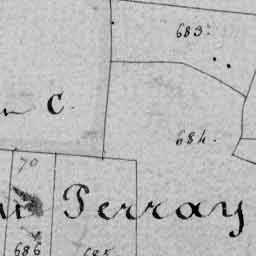 683.
C.
684.
70
Perray
686
685